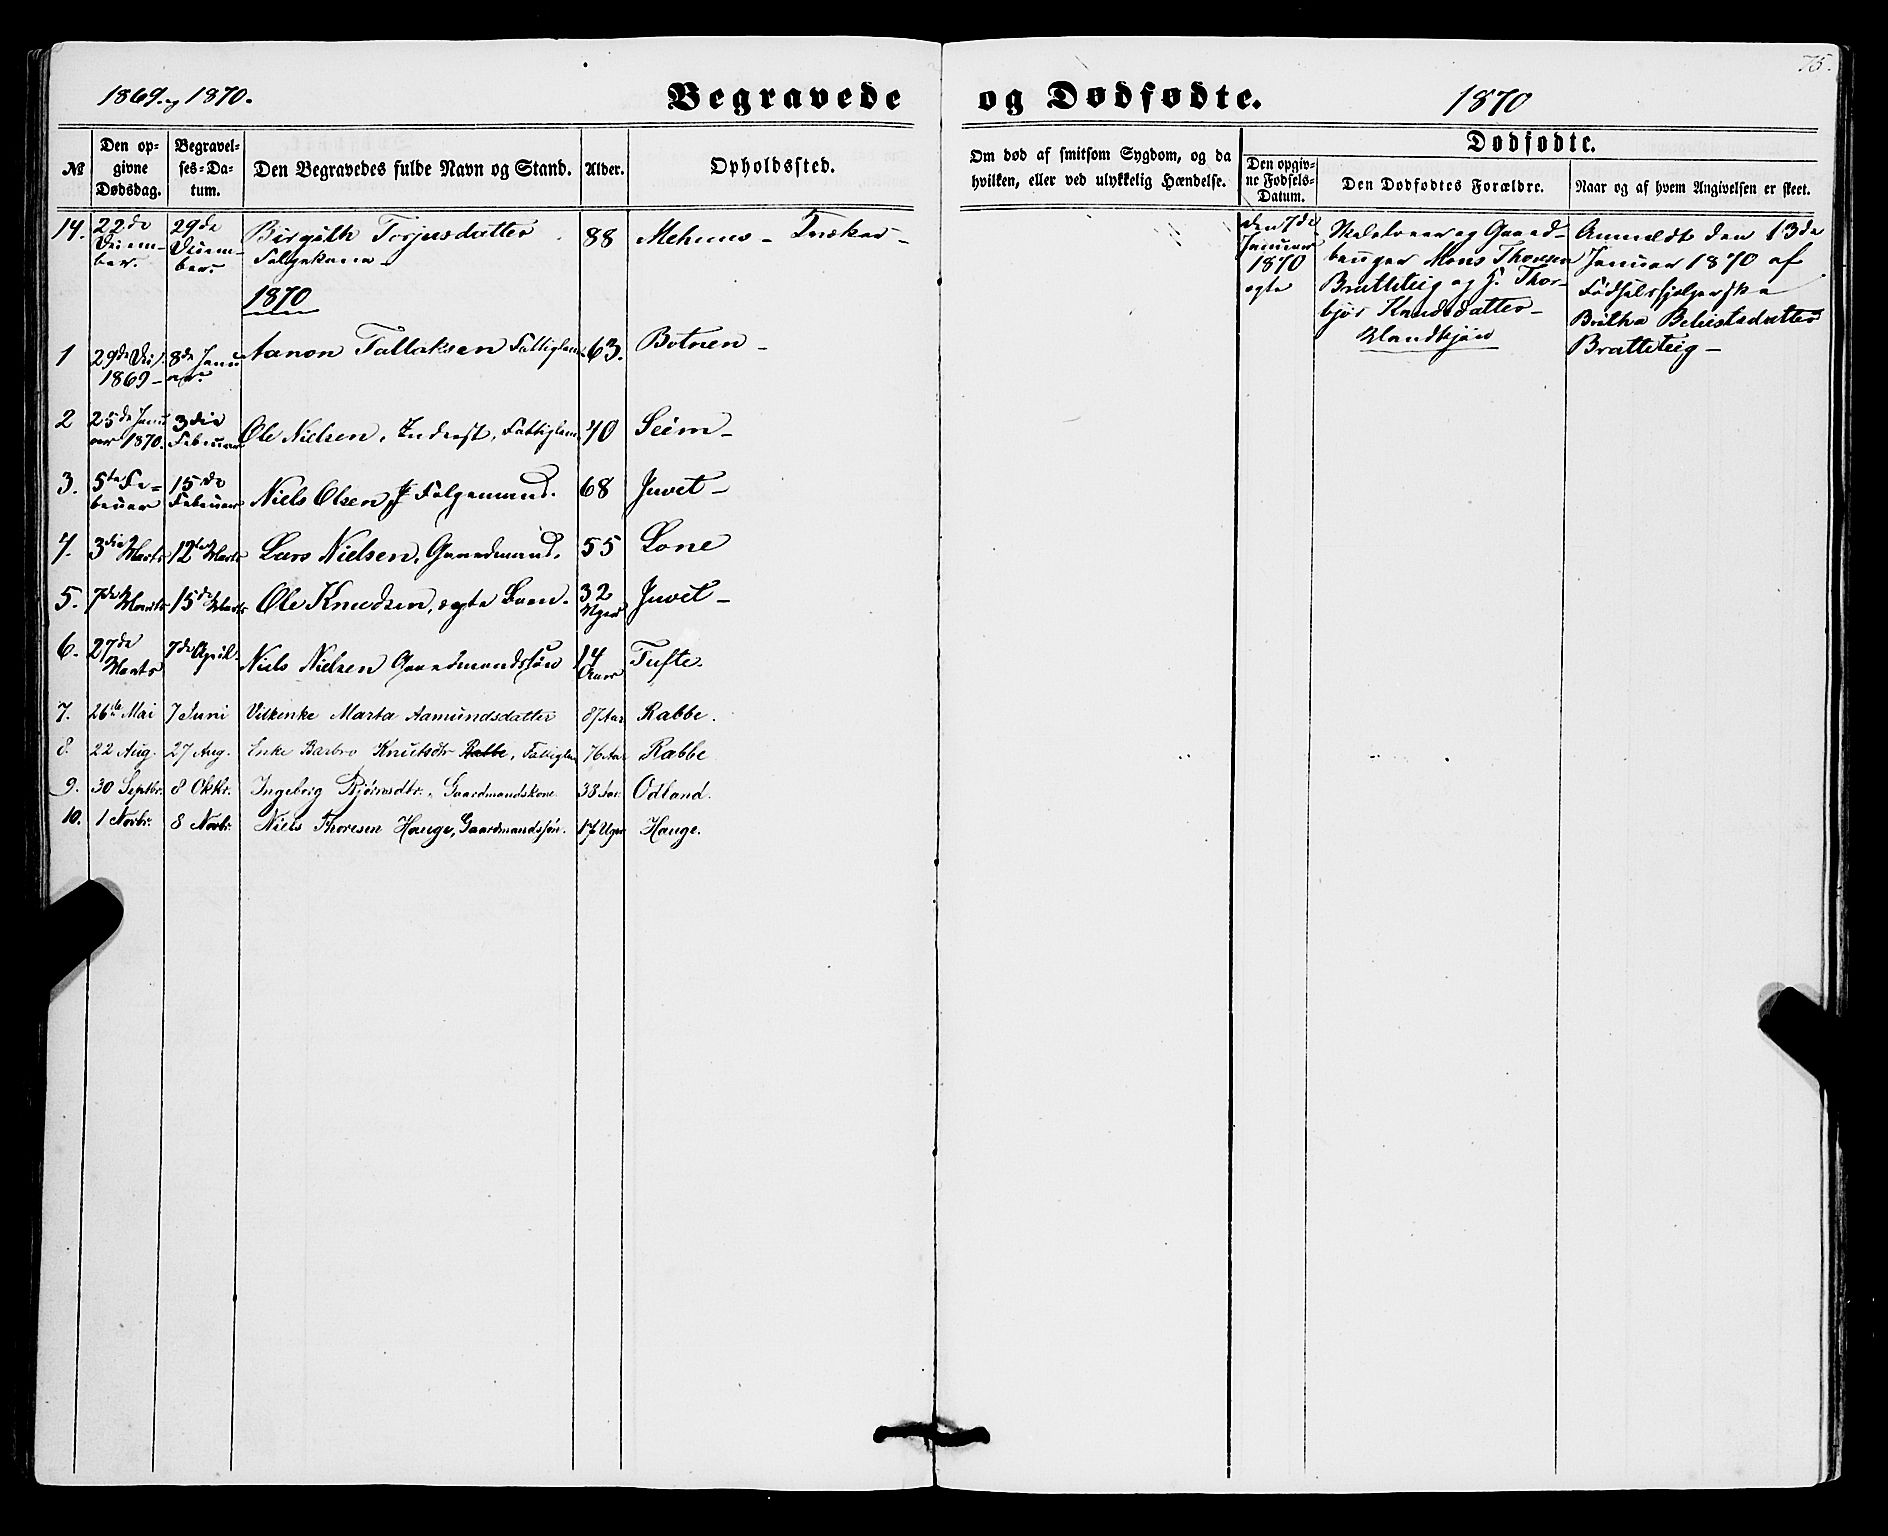 75.
1869 og 1870.
Begravede og Dødfødte.
1870
№
Den opgivne Dødsdag.
Begravelses-Datum.
Den Begravedes fulde Navn og Stand.
Alder.
Opholdssted.
Om død af smitsom Sygdom, og da hvilken, eller ved ulykkelig Hændelse.
Dødfødte.
Den opgivne Fødsels-Datum.
Den Dødfødtes Forældre.
Naar og af hvem Angivelsen er skeet.
14. 22de December. 29de December. Birgith Torjusdatter Folgekone 88 Mehuus
1870
1 29de Dec. 1869 8de Januar Aanon Tallaksen Fattiglem 63. Botnen
2 25de Januar 1870. 3die Februar Ole Nielsen, Inderst, Fattiglem 40 Seim
3. 5te Februar 15de Februar Niels Olsen Folgemand. 68 Juvet
4. 3die Marts 12te Marts Lars Nielsen, Gaardmand. 55 Lone
5. 7de Marts 15de Marts Ole Knudsen, ægte Barn. 32 Uger Juvet
6. 27de Marts 7de April Niels Nielsen Gaardmandssøn 14 Aar Tufte.
7. 26de Mai 7 Juni Marta Aamundsdatter 87 Aar Rabbe.
8. 22 Aug. 27 Aug. Enke Barbro Knutsdtr Rabbe, Fattiglem 76 Aar Rabbe
9. 30 Septbr. 8 Oktbr. Ingeborg Bjørnsdtr., Gaardmandskone 38 Aar Odland.
10. 1 Novbr. 8 Novbr. Niels Thoresen Hauge, Gaardmandssøn. 17 Uger Hauge.
den 7de Januar 1870 ægte
og Gaardbruger Mons Thorsen
Bratteteig og H. Thor-
bjør Knudsdatter
Mandkjøn
Anmeldt den 13de
Januar 1870 af
Fødselshjelperske
Britha
Bratteteig